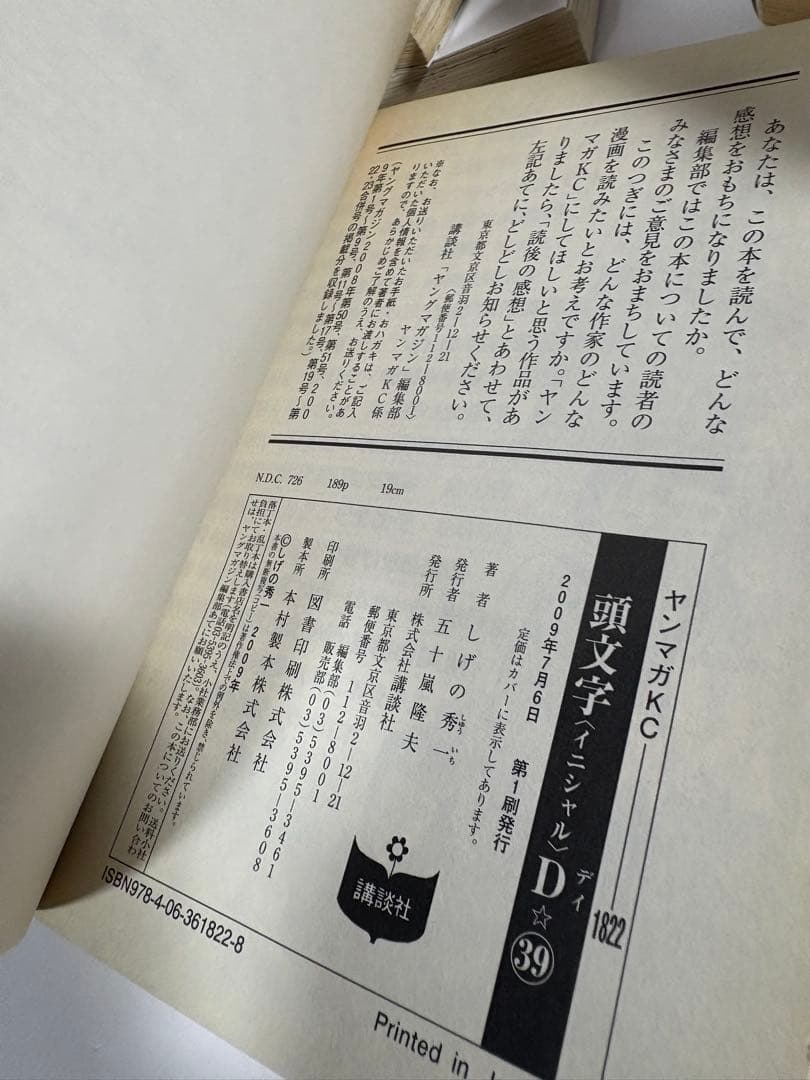 あなたは、この本を読んで、どんな
感想をおもちになりましたか。
編集部ではこの本についての読者の
みなさまのご意見をおまちしています。
このつぎには、どんな作家のどんな
漫画を読みたいとお考えですか。「ヤン
マガKC」にしてほしいと思う作品があ
りましたら、「読後の感想」とあわせて、
左記あてに、どしどしお知らせください。
東京都文京区音羽2―12―21
〈郵便番号112―8001〉
講談社「ヤングマガジン」編集部
ヤンマガKC係
※なお、お送りいただいたお手紙・おハガキは、ご記入
いただいた個人情報を含めて著者にお渡しすることがあ
りますので、あらかじめご了解のうえ、お送りください。
(ヤングマガジン2008年第50号、第51号、200
9年第1号〜第9号、第11号〜第17号、第19号〜第
22・23合併号の掲載分を収録しました。)
N.D.C. 726 189p 19cm
ヤンマガKC―1822
頭文字〈イニシャル〉D☆㊴
ディ
2009年7月6日 第1刷発行
定価はカバーに表示してあります。
著者 しげの秀一
しゅういち
発行者 五十嵐隆夫
発行所 株式会社講談社
東京都文京区音羽2―12―21
郵便番号 112―8001
電話 編集部(03)5395―3461
販売部(03)5395―3608
印刷所 図書印刷株式会社
製本所 本村製本株式会社
©しげの秀一 2009年
本書の無断複写(コピー)は著作権法上での例外を除き、禁じられています。
落丁本・乱丁本は購入書店名を明記のうえ、小社業務部にお送りください。送料小社
負担にてお取り替えします(電話03-5395-3603)。なお、この本についてのお問い合わ
せは、ヤングマガジン編集部あてにお願いいたします。
講談社
ISBN978-4-06-361822-8
Printed in